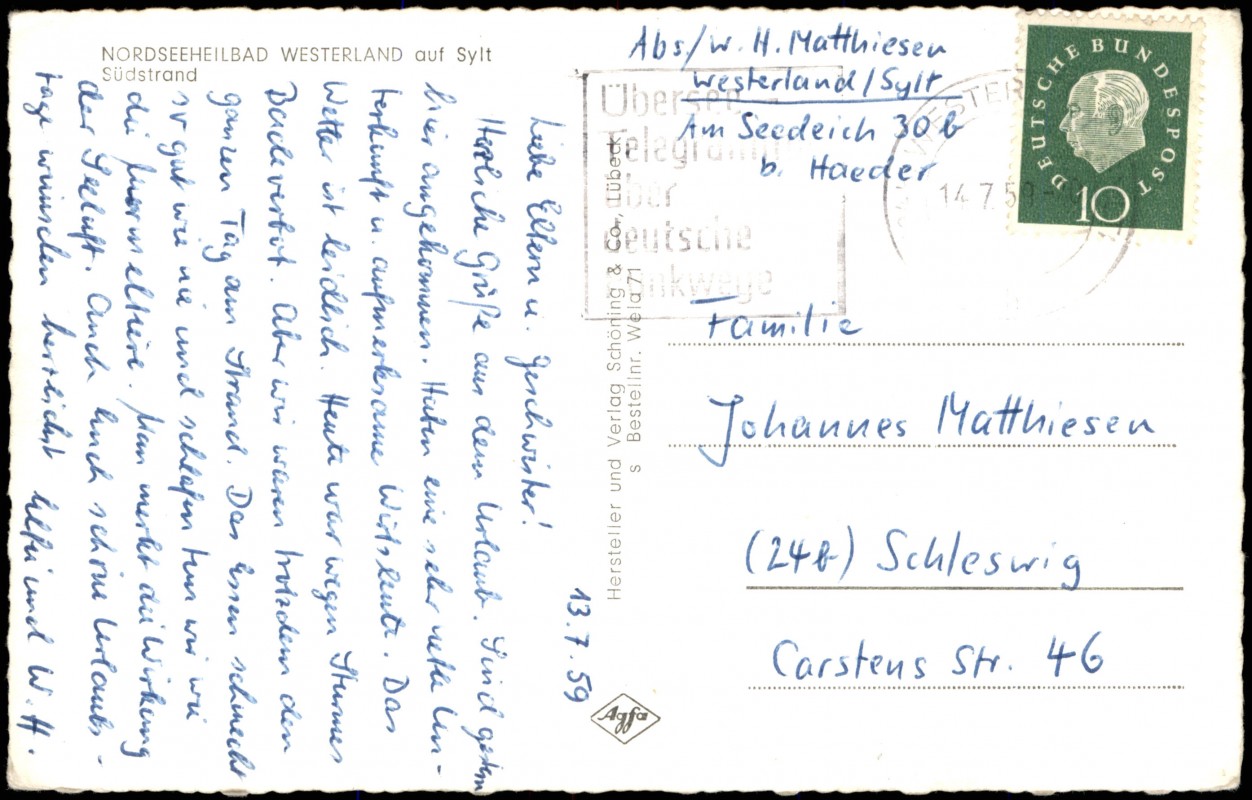 NORDSEEHEILBAD WESTERLAND auf Sylt
Südstrand
13.7.59
Liebe Eltern u. Geschwister!
Herzliche Grüße aus dem Urlaub. Sind gestern
hier angekommen. Haben eine sehr nette Un-
terkunft u. aufmerksame Wirtsleute. Das
Wetter ist leidlich. Heute war wegen Sturmes
Badeverbot. Aber wir waren trotzdem den
ganzen Tag am Strand. Das Essen schmeckt
so gut wie nie und schlafen tun wir wie
die Murmeltiere. Man merkt die Wirkung
der Seeluft. Auch Euch schöne Urlaubs-
tage wünschen herzlichst und W. H.
Hersteller und Verlag Schöning & Co., Lübeck
s Bestellnr. Wela 71
Agfa
Abs/W. H. Matthiesen
Westerland/Sylt
Am Seedeich 30 b
b. Haeder
Übersee
Telegramme
über
deutsche
Funkwege
WESTER
14.7.59
DEUTSCHE BUNDESPOST
10
Familie
Johannes Matthiesen
(24b) Schleswig
Carstens Str. 46